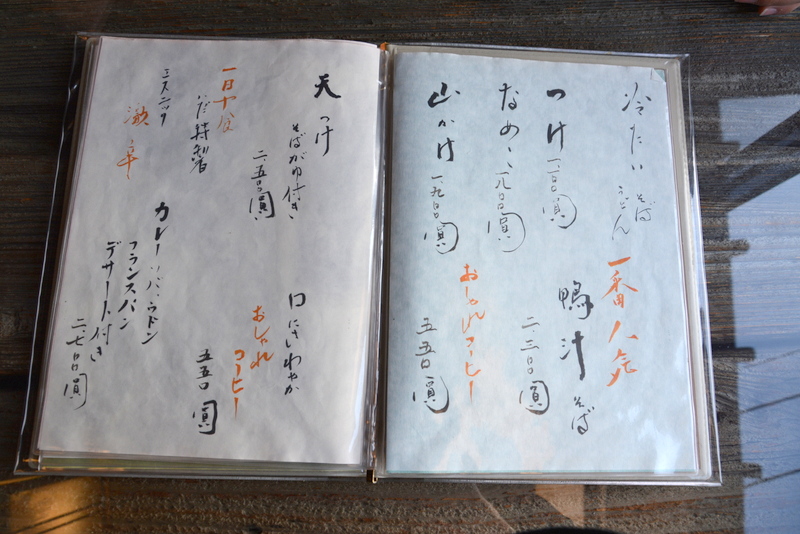 冷たい そば うどん
つけ 一、二〇〇圓
なめこ 一、八〇〇圓
山かけ 一、九〇〇圓
一番人気
鴨汁そば
二、三〇〇圓
おしゃれコーヒー
五五〇圓
天つけ
そばがゆ付き
二、五〇〇圓
一日十食
だけ特製
激辛
カレーソバ、ウドン
フランスパン
デザート付き
二、七〇〇圓
口にさわやか
おしゃれ
コーヒー
五五〇圓